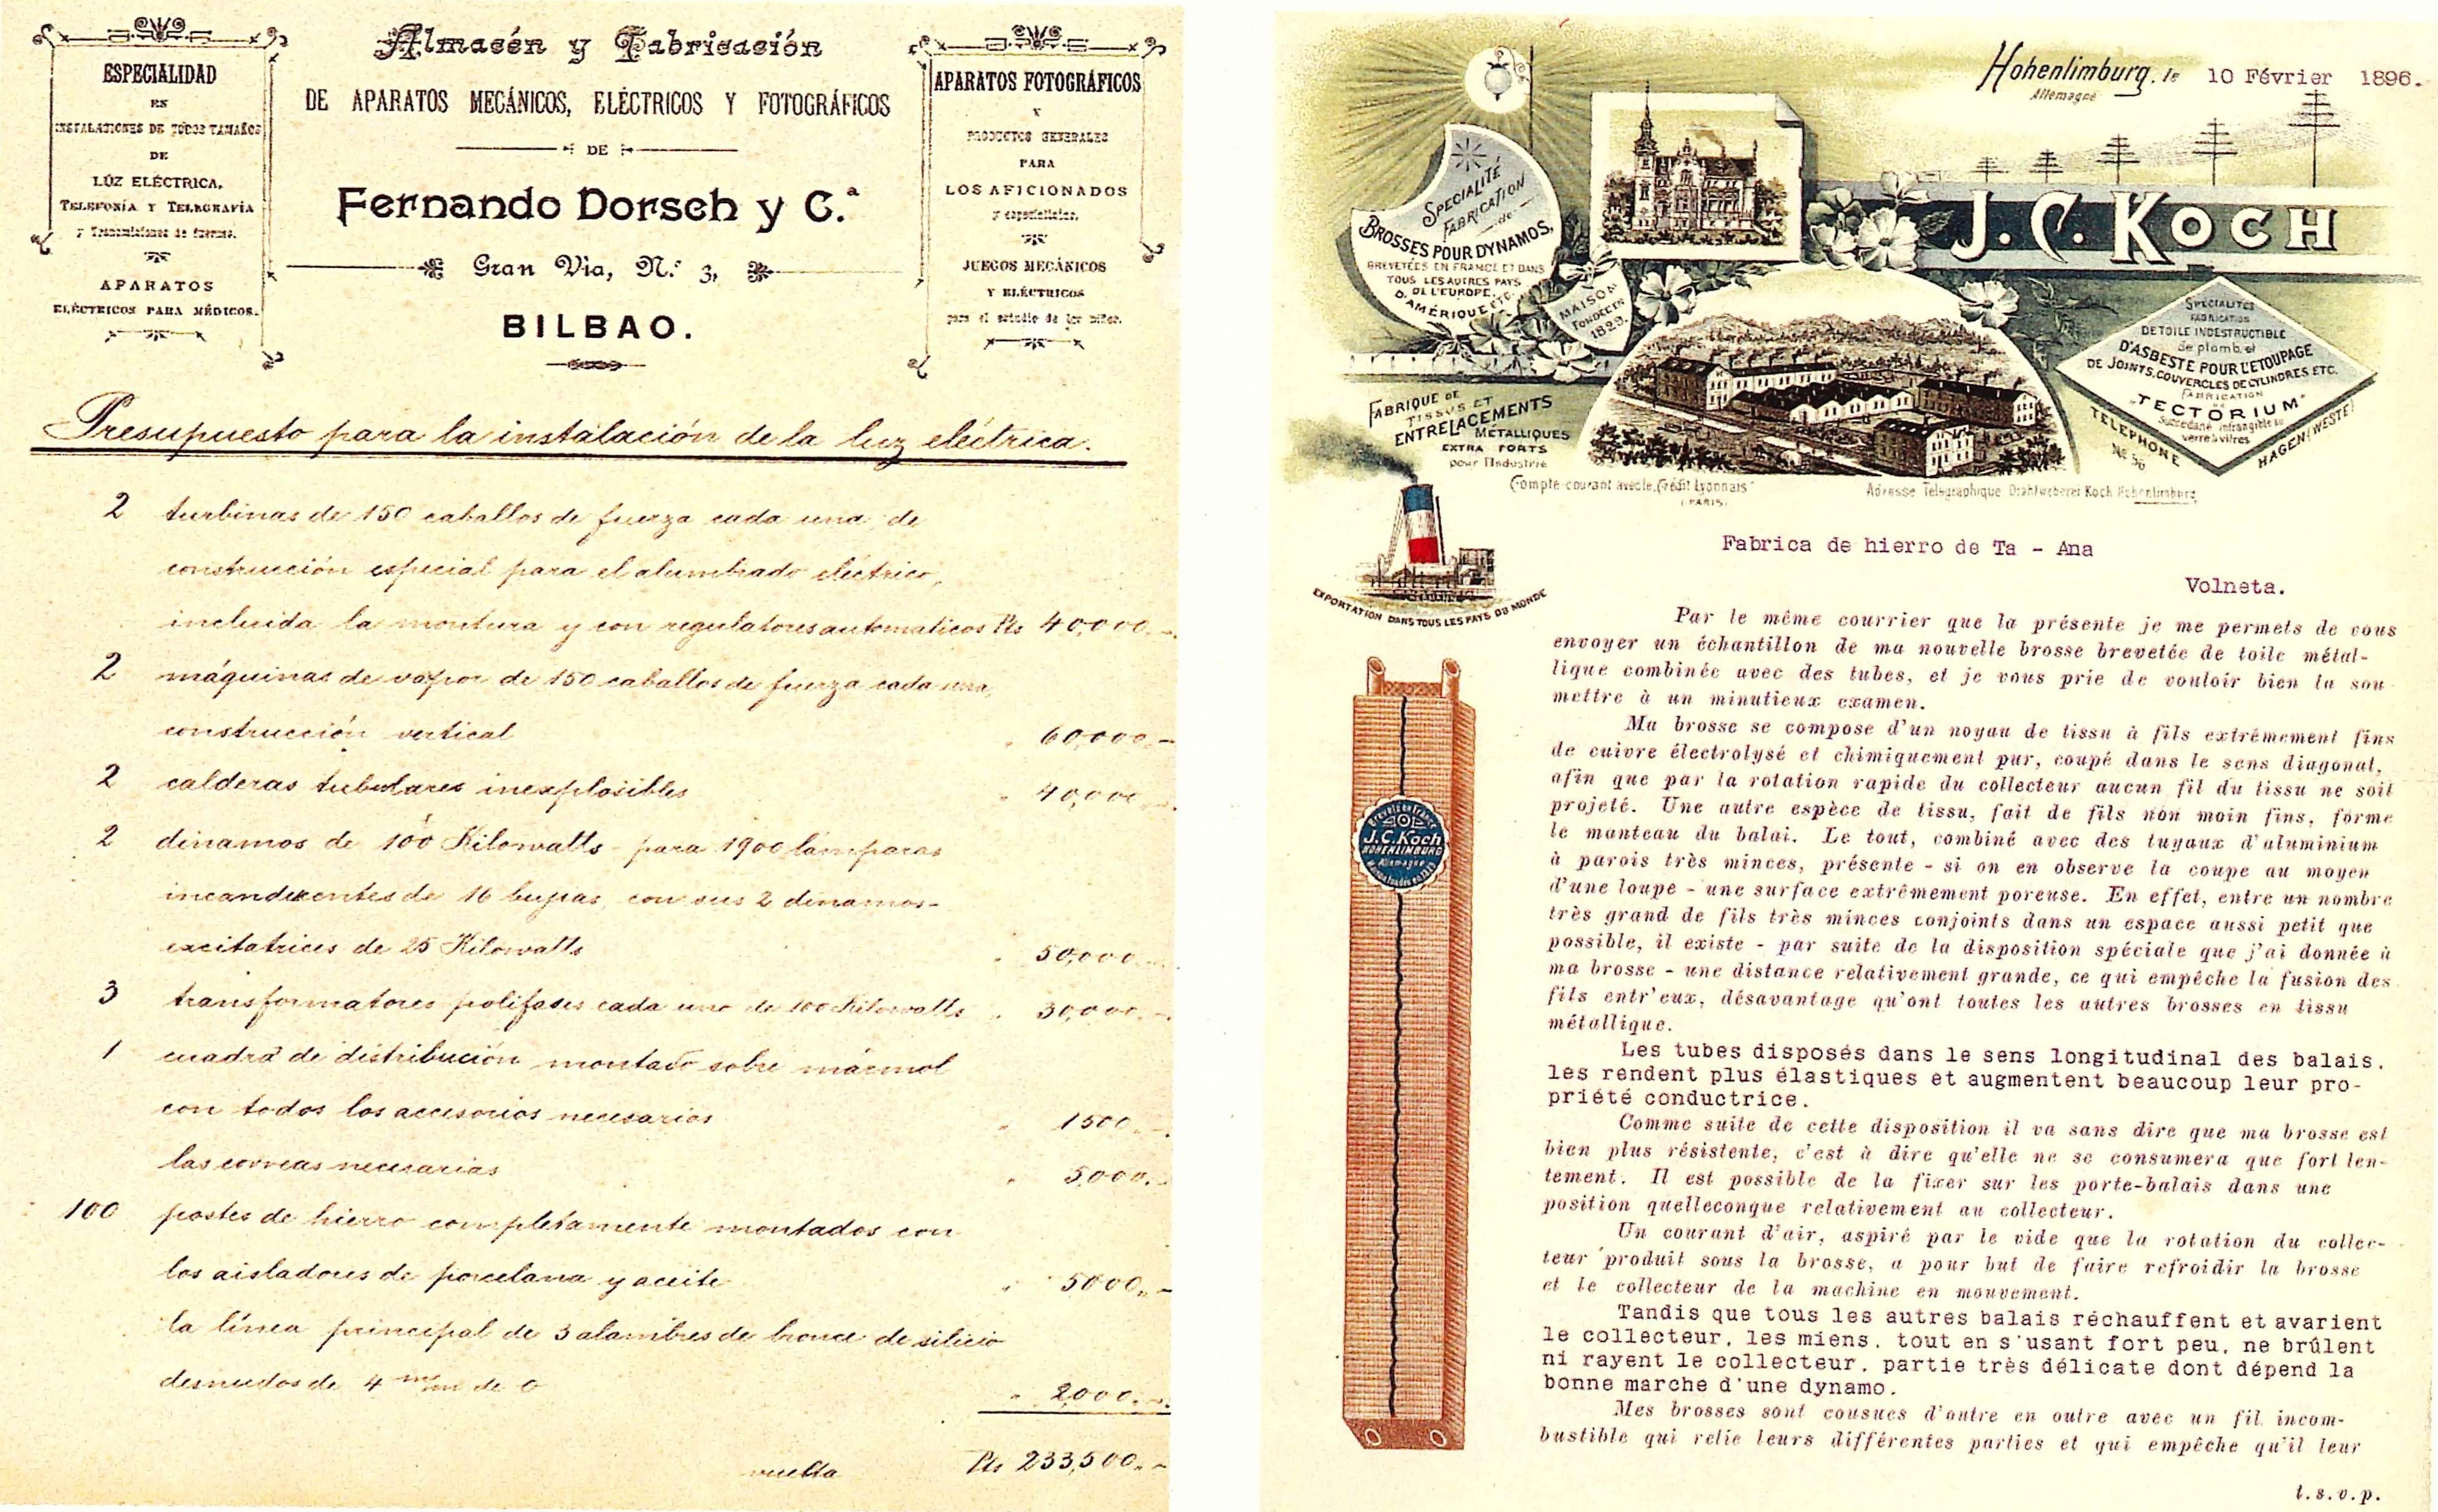 ESPECIALIDAD
EN
INSTALACIONES DE TODOS TAMAÑOS
DE
LÚZ ELÉCTRICA,
TELEFONÍA Y TELEGRAFÍA
y Transmisiones de fuerza.
APARATOS
ELÉCTRICOS PARA MÉDICOS.
Almacén y Fabricación
DE APARATOS MECÁNICOS, ELÉCTRICOS Y FOTOGRÁFICOS
DE
Fernando Dorseh y C.ª
Gran Vía, N.º 3,
BILBAO.
APARATOS FOTOGRÁFICOS
Y
PRODUCTOS GENERALES
PARA
LOS AFICIONADOS
y especialistas.
JUEGOS MECÁNICOS
Y ELÉCTRICOS
para el estudio de los niños.
Presupuesto para la instalación de la luz eléctrica.
2 turbinas de 150 caballos de fuerza cada una, de
construcción especial para el alumbrado eléctrico,
incluida la montura y con reguladores automaticos Pts 40,000.-
2 máquinas de vapor de 150 caballos de fuerza cada una,
construcción vertical " 60,000.-
2 calderas tubulares inexplosibles " 40,000.-
2 dinamos de 100 Kilowatts para 1900 lámparas
incandecentes de 16 bujias, con sus 2 dinamos-
excitatrices de 25 Kilowatts " 50,000.-
3 transformatores polifases cada uno de 100 Kilowatts " 30,000.-
1 cuadra de distribución montado sobre mármol
con todos los accesorios necesarios " 1500.-
las correas necesarias " 5,000.-
100 postes de hierro completamente montados con
los aisladores de porcelana y aceite " 5000.-
la línea principal de 3 alambres de bronce de silicio
desnudos de 4 m/m de O " 2,000.-
vuelta Pts 233,500.-
Hohenlimburg, le 10 Février 1896.
Allemagne
SPECIALITÉ
FABRICATION
de
BROSSES POUR DYNAMOS,
BREVETÉES EN FRANCE ET DANS
TOUS LES AUTRES PAYS
DE L'EUROPE,
D'AMÉRIQUE, ETC.
MAISON
FONDÉE EN
1829.
J. C. KOCH
SPECIALITÉS
FABRICATION
DE TOILE INDESTRUCTIBLE
de plomb et
D'ASBESTE POUR L'ETOUPAGE
DE JOINTS, COUVERCLES DE CYLINDRES ETC.
FABRICATION
"TECTORIUM"
Succédané infrangible du
verre à vitres
TELEPHONE
No 56
HAGEN (WESTF.)
FABRIQUE DE
TISSUS ET
ENTRELACEMENTS
MÉTALLIQUES
EXTRA FORTS
pour l'Industrie
Compte-courant avec le "Crédit Lyonnais"
(PARIS)
Adresse Télégraphique Drahtweberei Koch Hohenlimburg
EXPORTATION DANS TOUS LES PAYS DU MONDE
Fabrica de hierro de Ta - Ana
Volneta.
Par le même courrier que la présente je me permets de vous
envoyer un échantillon de ma nouvelle brosse brevetée de toile métal-
lique combinée avec des tubes, et je vous prie de vouloir bien la sou
mettre à un minutieux examen.
Ma brosse se compose d'un noyau de tissu à fils extrêmement fins
de cuivre électrolysé et chimiquement pur, coupé dans le sens diagonal,
afin que par la rotation rapide du collecteur aucun fil du tissu ne soit
projeté. Une autre espèce de tissu, fait de fils non moin fins, forme
le manteau du balai. Le tout, combiné avec des tuyaux d'aluminium
à parois très minces, présente - si on en observe la coupe au moyen
d'une loupe - une surface extrêmement poreuse. En effet, entre un nombre
très grand de fils très minces conjoints dans un espace aussi petit que
possible, il existe - par suite de la disposition spéciale que j'ai donnée à
ma brosse - une distance relativement grande, ce qui empêche la fusion des
fils entr'eux, désavantage qu'ont toutes les autres brosses en tissu
métallique.
Les tubes disposés dans le sens longitudinal des balais,
les rendent plus élastiques et augmentent beaucoup leur pro-
priété conductrice.
Comme suite de cette disposition il va sans dire que ma brosse est
bien plus résistente, c'est à dire qu'elle ne se consumera que fort len-
tement. Il est possible de la fixer sur les porte-balais dans une
position quelleconque relativement au collecteur.
Un courant d'air, aspiré par le vide que la rotation du collec-
teur produit sous la brosse, a pour but de faire refroidir la brosse
et le collecteur de la machine en mouvement.
Tandis que tous les autres balais réchauffent et avarient
le collecteur, les miens, tout en s'usant fort peu, ne brûlent
ni rayent le collecteur, partie très délicate dont dépend la
bonne marche d'une dynamo.
Mes brosses sont cousues d'outre en outre avec un fil incom-
bustible qui relie leurs différentes parties et qui empêche qu'il leur
t.s.v.p.
J.C. Koch
HOHENLIMBURG
Allemagne